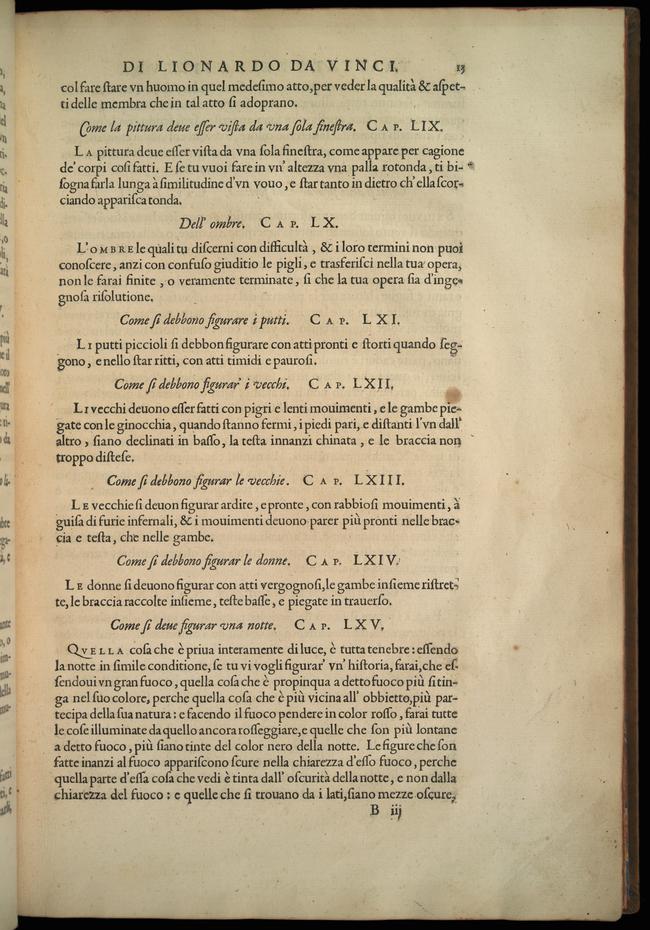 DI LIONARDO DA VINCI. 13
col fare ſtare vn huomo in quel medeſimo atto, per veder la qualità & aſpet-
ti delle membra che in tal atto ſi adoprano.
Come la pittura deue eſſer viſta da vna ſola fineſtra. CAP. LIX.
LA pittura deue eſſer viſta da vna ſola fineſtra, come appare per cagione
de' corpi coſi fatti. E ſe tu vuoi fare in vn' altezza vna palla rotonda, ti bi-
ſogna farla lunga à ſimilitudine d'vn vouo, e ſtar tanto in dietro ch' ella ſcor-
ciando appariſca tonda.
Dell' ombre. CAP. LX.
L'OMBRE le quali tu diſcerni con difficultà, & i loro termini non puoi
conoſcere, anzi con confuſo giuditio le pigli, e trasferiſci nella tua opera,
non le farai finite, o veramente terminate, ſi che la tua opera ſia d'inge-
gnoſa riſolutione.
Come ſi debbono figurare i putti. CAP. LXI.
LI putti piccioli ſi debbon figurare con atti pronti e ſtorti quando ſeg-
gono, e nello ſtar ritti, con atti timidi e pauroſi.
Come ſi debbono figurar' i vecchi. CAP. LXII.
LI vecchi deuono eſſer fatti con pigri e lenti mouimenti, e le gambe pie-
gate con le ginocchia, quando ſtanno fermi, i piedi pari, e diſtanti l'vn dall'
altro, ſiano declinati in baſſo, la teſta innanzi chinata, e le braccia non
troppo diſteſe.
Come ſi debbono figurar le vecchie. CAP. LXIII.
LE vecchie ſi deuon figurar ardite, e pronte, con rabbioſi mouimenti, à
guiſa di furie infernali, & i mouimenti deuono parer più pronti nelle brac-
cia e teſta, che nelle gambe.
Come ſi debbono figurar le donne. CAP. LXIV.
LE donne ſi deuono figurar con atti vergognoſi, le gambe inſieme riſtret-
te, le braccia raccolte inſieme, teſte baſſe, e piegate in trauerſo.
Come ſi deue figurar vna notte. CAP. LXV.
QVELLA coſa che è priua interamente di luce, è tutta tenebre: eſſendo
la notte in ſimile conditione, ſe tu vi vogli figurar' vn' hiſtoria, farai, che eſ-
ſendoui vn gran fuoco, quella coſa che è propinqua a detto fuoco più ſi tin-
ga nel ſuo colore, perche quella coſa che è più vicina all' obbietto, più par-
tecipa della ſua natura: e facendo il fuoco pendere in color roſſo, farai tutte
le coſe illuminate da quello ancora roſſeggiare, e quelle che ſon più lontane
a detto fuoco, più ſiano tinte del color nero della notte. Le figure che ſon
fatte inanzi al fuoco appariſcono ſcure nella chiarezza d'eſſo fuoco, perche
quella parte d'eſſa coſa che vedi è tinta dall' oſcurità della notte, e non dalla
chiarezza del fuoco: e quelle che ſi trouano da i lati, ſiano mezze oſcure,
B iij